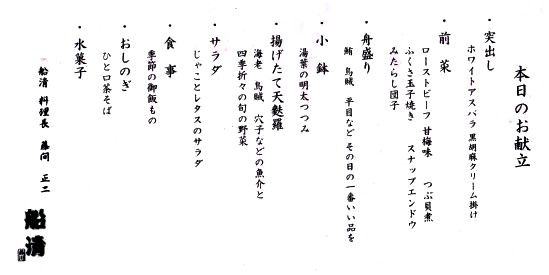 本日のお献立
・突出し
ホワイトアスパラ 黒胡麻クリーム掛け
・前菜
ローストビーフ 甘梅味 つぶ貝煮
ふくさ玉子焼き スナップエンドウ
みたらし団子
・舟盛り
鮪 烏賊 平目など その日の一番いい品を
・小鉢
湯葉の明太つつみ
・揚げたて天麩羅
海老 烏賊 穴子などの魚介と
四季折々の旬の野菜
・サラダ
じゃことレタスのサラダ
・食事
季節の御飯もの
・おしのぎ
ひと口茶そば
・水菓子
船清 料理長 藤間 正二
船清